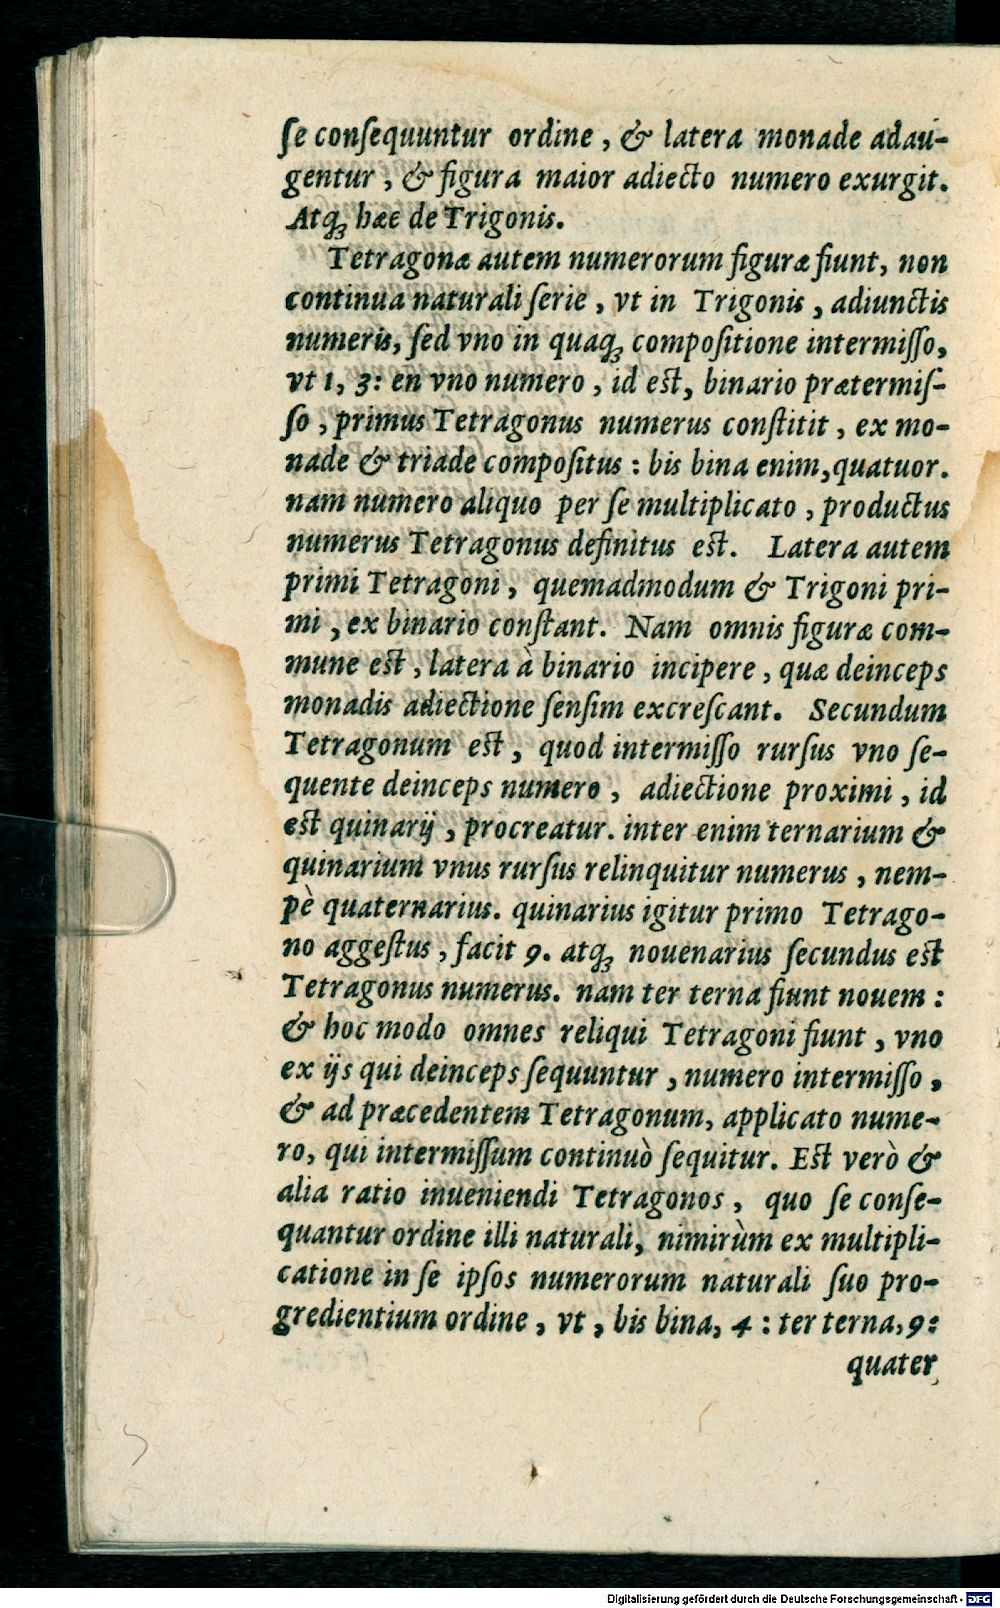 ſe conſequuntur ordine, & latera monade adau-
gentur, & figura maior adiecto numero exurgit.
Atq́ꝫ hæc de Trigonis.
Tetragonæ autem numerorum figuræ fiunt, non
continua naturali ſerie, vt in Trigonis, adiunctis
numeris, ſed vno in quaqꝫ compoſitione intermiſſo,
vt 1, 3: en vno numero, id est, binario prætermiſ-
ſo, primus Tetragonus numerus conſtitit, ex mo-
nade & triade compoſitus: bis bina enim, quatuor.
nam numero aliquo per ſe multiplicato, productus
numerus Tetragonus definitus est. Latera autem
primi Tetragoni, quemadmodum & Trigoni pri-
mi, ex binario conſtant. Nam omnis figuræ com-
mune est, latera à binario incipere, quæ deinceps
monadis adiectione ſenſim excreſcant. Secundum
Tetragonum est, quod intermiſſo rurſus vno ſe-
quente deinceps numero, adiectione proximi, id
est quinarij, procreatur. inter enim ternarium &
quinarium vnus rurſus relinquitur numerus, nem-
pè quaternarius. quinarius igitur primo Tetrago-
no aggeſtus, facit 9. atqꝫ nouenarius ſecundus est
Tetragonus numerus. nam ter terna fiunt nouem:
& hoc modo omnes reliqui Tetragoni fiunt, vno
ex ijs qui deinceps ſequuntur, numero intermiſſo,
& ad præcedentem Tetragonum, applicato nume-
ro, qui intermiſſum continuò ſequitur. Est verò &
alia ratio inueniendi Tetragonos, quo ſe conſe-
quantur ordine illi naturali, nimirùm ex multipli-
catione in ſe ipſos numerorum naturali ſuo pro-
gredientium ordine, vt, bis bina, 4: ter terna, 9:
quater
Digitalisierung gefördert durch die Deutsche Forschungsgemeinschaft - DFG